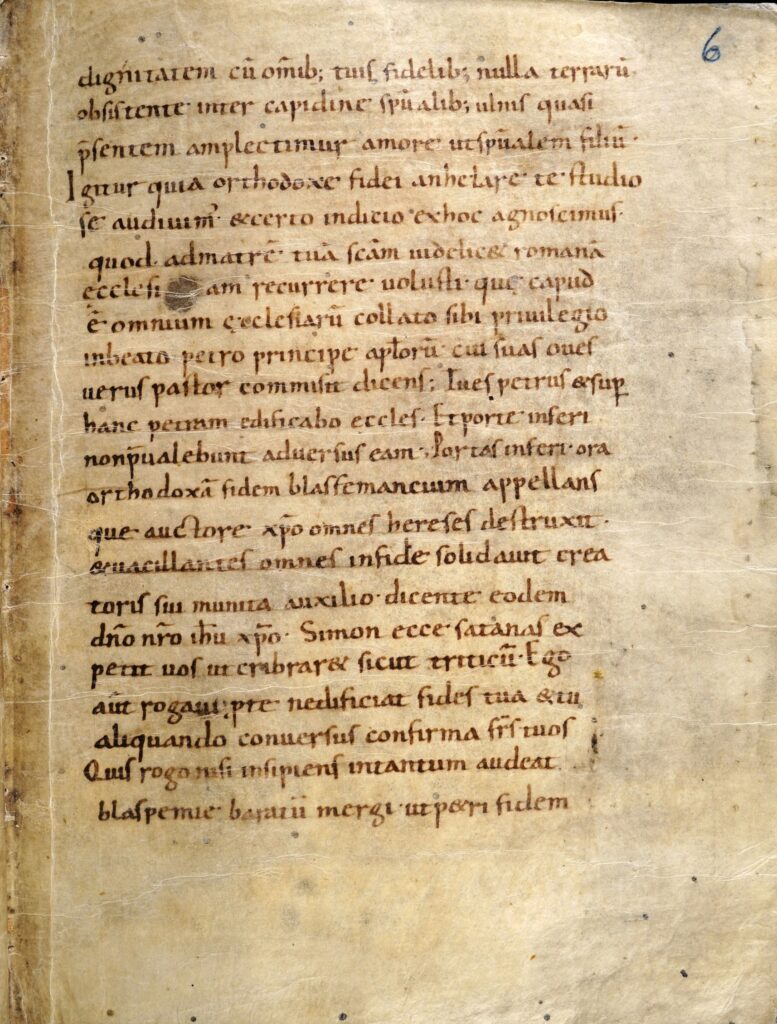 6
dignitatem cū om̅ib; tuis fidelib; nulla terrarū
obsistente inter capidine sp̅ualib; ulnis quasi
p̅sentem amplectimur amore ut sp̅ualem filiū·
Igitur quia orthodoxe fidei anhelare te studio
se audiuim᾽ & certo indicio ex hoc agnoscimus·
quod admatrē tuā sc̅am uidelic& romanā
ecclesiam recurrere uoluisti· quę capud
ē omnium ęcclesiarū collato sibi priuilegio
inbeato petro principe ap̅torū cui suas oues
uerus pastor commisit dicens; Tu es petrus & sup̲
hanc petram edificabo eccles· Et porte inferi
nonp̅ualebunt aduersus eam· Portas inferi· ora
orthodoxā fidem blasfemancium appellans
que auctore xp̅o omnes hereses destruxit·
& uacillantes omnes infide solidauit crea
toris sui munita auxilio· dicente eodem
dn̅o nr̅o ih̅u xp̅o· Simon ecce satanas ex
petit uos ut cribrar& sicut triticū· Ego
aūt rogaui pre nedificiat fides tua & tu
aliquando conuersus confirma fr̅s tuos
Quis rogo nisi insipiens intantum audeat
blaspemie baratū mergi· ut p&ri fidem